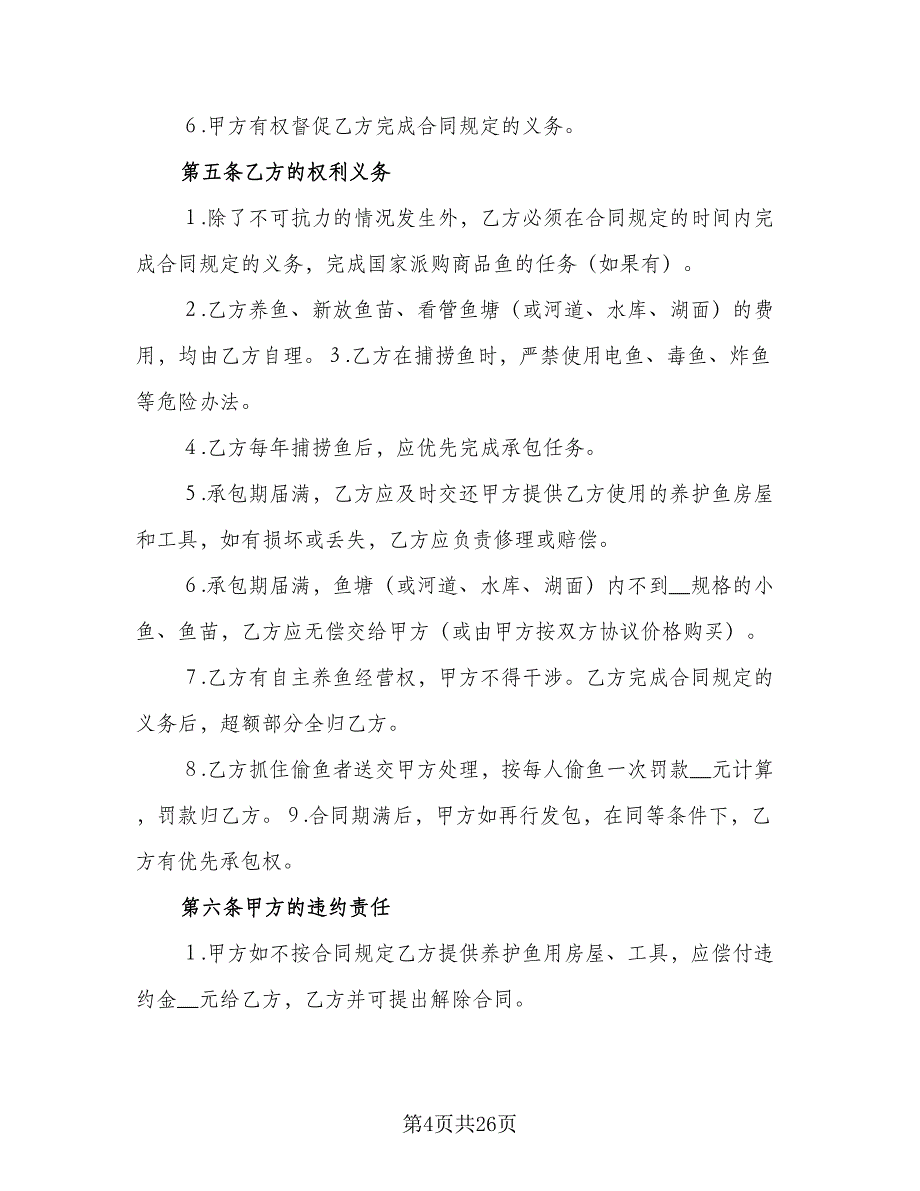 6.甲方有权督促乙方完成合同规定的义务。
第五条乙方的权利义务
1.除了不可抗力的情况发生外，乙方必须在合同规定的时间内完
成合同规定的义务，完成国家派购商品鱼的任务（如果有）。
2.乙方养鱼、新放鱼苗、看管鱼塘（或河道、水库、湖面）的费
用，均由乙方自理。3.乙方在捕捞鱼时，严禁使用电鱼、毒鱼、炸鱼
等危险办法。
4.乙方每年捕捞鱼后，应优先完成承包任务。
5.承包期届满，乙方应及时交还甲方提供乙方使用的养护鱼房屋
和工具，如有损坏或丢失，乙方应负责修理或赔偿。
6.承包期届满，鱼塘（或河道、水库、湖面）内不到__规格的小
鱼、鱼苗，乙方应无偿交给甲方（或由甲方按双方协议价格购买）。
7.乙方有自主养鱼经营权，甲方不得干涉。乙方完成合同规定的
义务后，超额部分全归乙方。
8.乙方抓住偷鱼者送交甲方处理，按每人偷鱼一次罚款__元计算
，罚款归乙方。9.合同期满后，甲方如再行发包，在同等条件下，乙
方有优先承包权。
第六条甲方的违约责任
1.甲方如不按合同规定乙方提供养护鱼用房屋、工具，应偿付违
约金__元给乙方，乙方并可提出解除合同。
第4页共26页